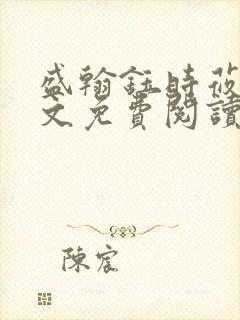 盛翰鈺時莜
文免費閱讀
陳宸